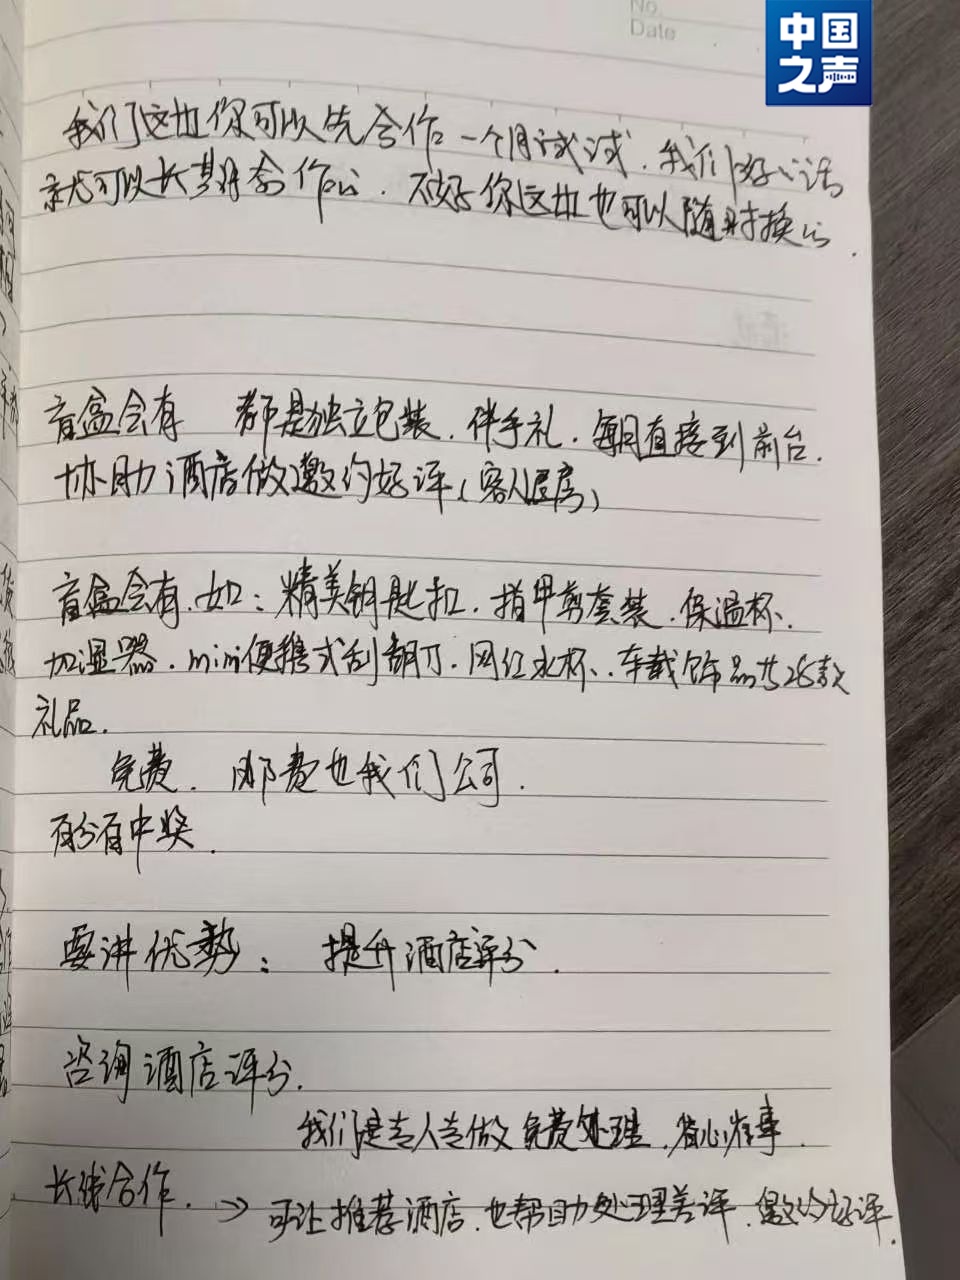 No.
Date
中国
之声
我们这边你可以先合作一个月试试.我们好以话
就可以长期合作以.不好你这边也可以随时换以.
盲盒会有 都是独立包装.伴手礼.每月直接到前台.
协助酒店做邀约好评(客人退房)
盲盒会有.如:精美钥匙扣.指甲剪套装.保温杯、
加湿器.mini便携式刮胡刀.网红水杯、.车载饰品共26款
礼品.
免费.邮费也我们公司.
百分百中奖.
要讲优势: 提升酒店评分.
咨询酒店评分.
我们是专人专做免费处理.省心省事.
长线合作. → 可让推荐酒店.也帮助处理差评.邀约好评.